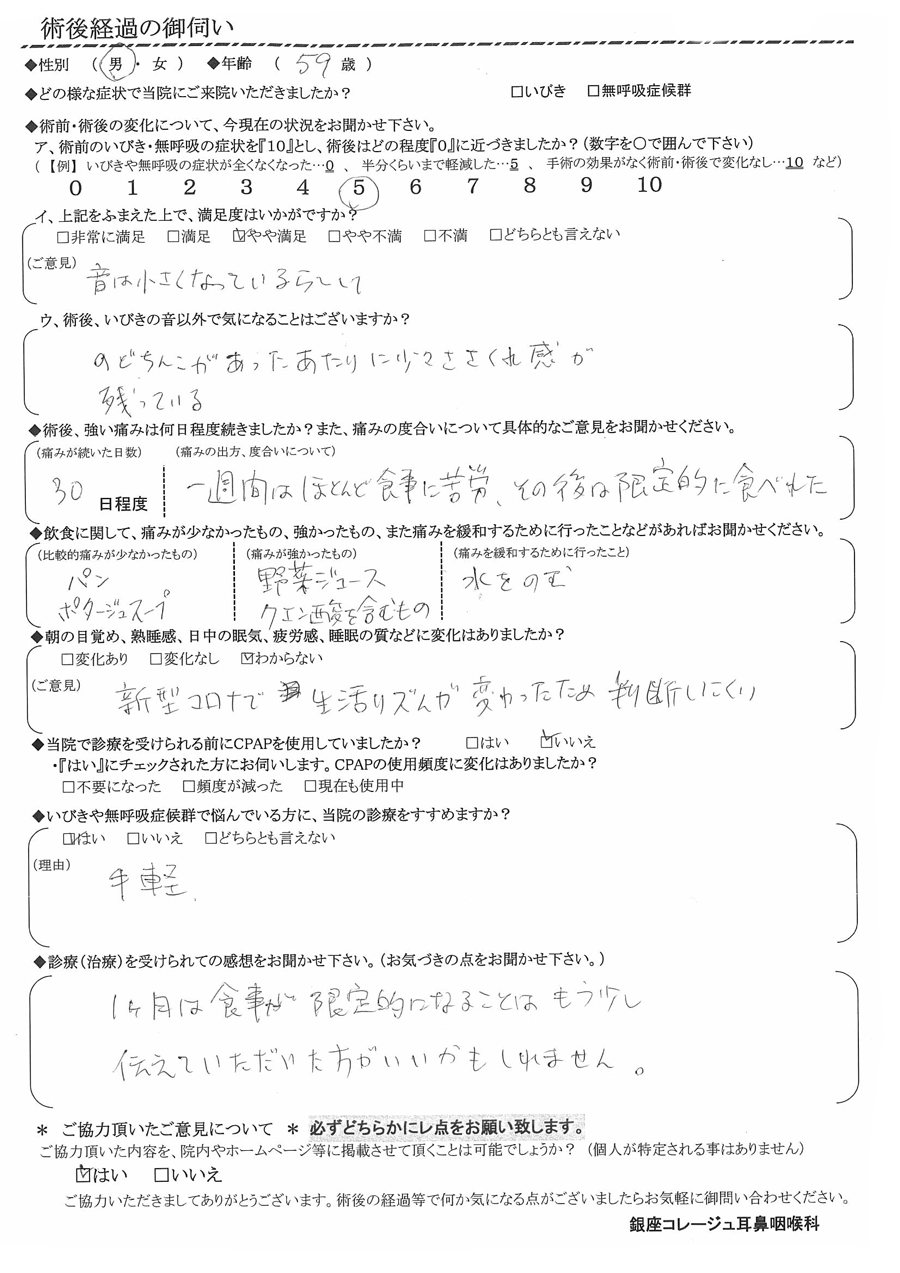 術後経過の御伺い
◆性別 ( 男 ・ 女 ) ◆年齢 ( 59 歳 )
◆どの様な症状で当院にご来院いただきましたか? □いびき □無呼吸症候群
◆術前・術後の変化について、今現在の状況をお聞かせ下さい。
ア、術前のいびき・無呼吸の症状を『10』とし、術後はどの程度『0』に近づきましたか?(数字を○で囲んで下さい)
(【例】いびきや無呼吸の症状が全くなくなった…0 、 半分くらいまで軽減した…5 、 手術の効果がなく術前・術後で変化なし…10 など)
0 1 2 3 4 5 6 7 8 9 10
イ、上記をふまえた上で、満足度はいかがですか?
□非常に満足 □満足 ☑やや満足 □やや不満 □不満 □どちらとも言えない
(ご意見) 音は小さくなっているらしい
ウ、術後、いびきの音以外で気になることはございますか?
のどちんこがあったあたりに少々ささくれ感が
残っている
◆術後、強い痛みは何日程度続きましたか?また、痛みの度合いについて具体的なご意見をお聞かせください。
(痛みが続いた日数) (痛みの出方、度合いについて)
30 日程度 一週間はほとんど食事に苦労、その後は限定的に食べれた
◆飲食に関して、痛みが少なかったもの、強かったもの、また痛みを緩和するために行ったことなどがあればお聞かせください。
(比較的痛みが少なかったもの) (痛みが強かったもの) (痛みを緩和するために行ったこと)
パン 野菜ジュース 水をのむ
ポタージュスープ クエン酸を含むもの
◆朝の目覚め、熟睡感、日中の眠気、疲労感、睡眠の質などに変化はありましたか?
□変化あり □変化なし ☑わからない
(ご意見) 新型コロナで 生活リズムが 変わったため 判断しにくい
◆当院で診療を受けられる前にCPAPを使用していましたか? □はい ☑いいえ
・『はい』にチェックされた方にお伺いします。CPAPの使用頻度に変化はありましたか?
□不要になった □頻度が減った □現在も使用中
◆いびきや無呼吸症候群で悩んでいる方に、当院の診療をすすめますか?
☑はい □いいえ □どちらとも言えない
(理由) 手軽.
◆診療(治療)を受けられての感想をお聞かせ下さい。(お気づきの点をお聞かせ下さい。)
1ヶ月は食事が限定的になることはもう少し
伝えていただいた方がいいかもしれません。
＊ ご協力頂いたご意見について ＊ 必ずどちらかにレ点をお願い致します。
ご協力頂いた内容を、院内やホームページ等に掲載させて頂くことは可能でしょうか? (個人が特定される事はありません)
☑はい □いいえ
ご協力いただきましてありがとうございます。術後の経過等で何か気になる点がございましたらお気軽に御問い合わせください。
銀座コレージュ耳鼻咽喉科